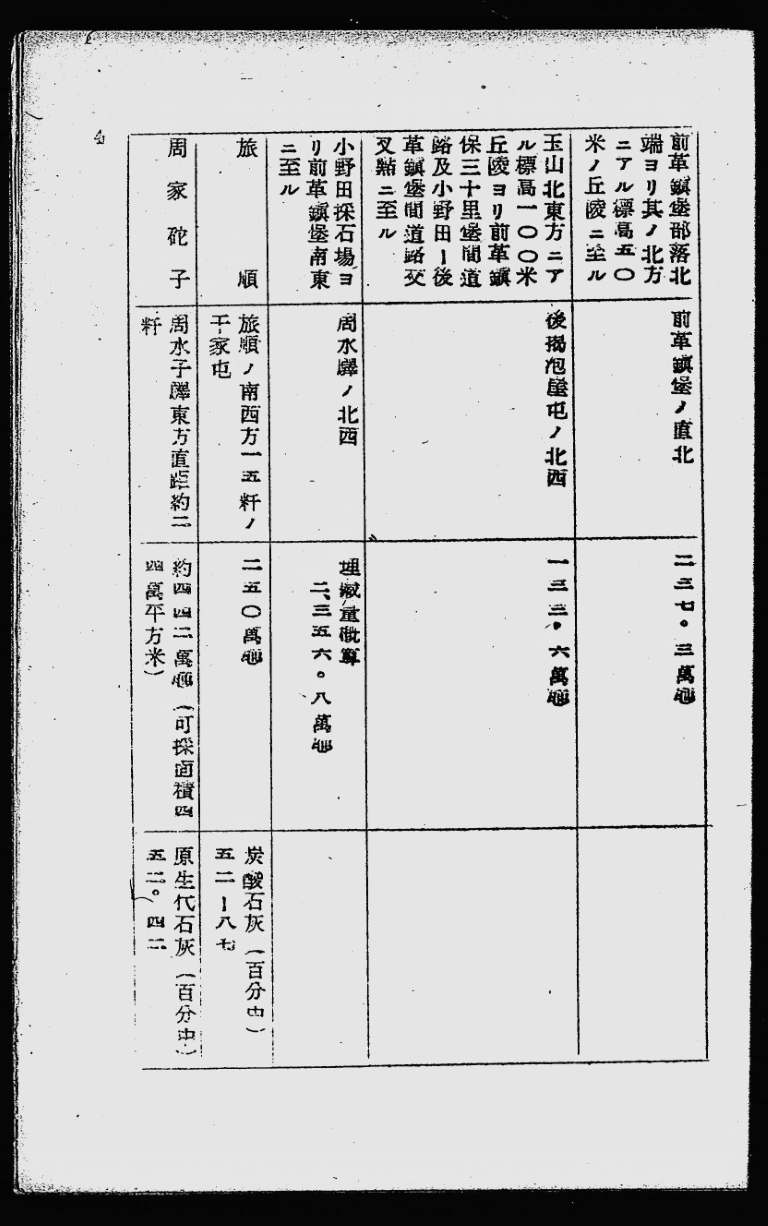 4
前革鎭堡部落北
端ヨリ其ノ北方
ニアル標高五〇
米ノ丘陵ニ至ル
前革鎭堡ノ直北
二三七。三萬噸
玉山北東方ニア
ル標高一〇〇米
丘陵ヨリ前革鎭
保三十里堡間道
路及小野田ー後
革鎭堡間道路交
叉點ニ至ル
後掲泡崖屯ノ北西
一三三。六萬噸
小野田採石場ヨ
リ前革鎭堡南東
ニ至ル
周水驛ノ北西
埋藏量概算
二、三五六。八萬噸
旅順
旅順ノ南西方一五粁ノ
干家屯
二五〇萬噸
炭酸石灰(百分中)
五二ー八七
周家砣子
周水子驛東方直距約二
粁
約四四二萬噸(可採面積四
四萬平方米)
原生代石灰(百分中)
五二。四二